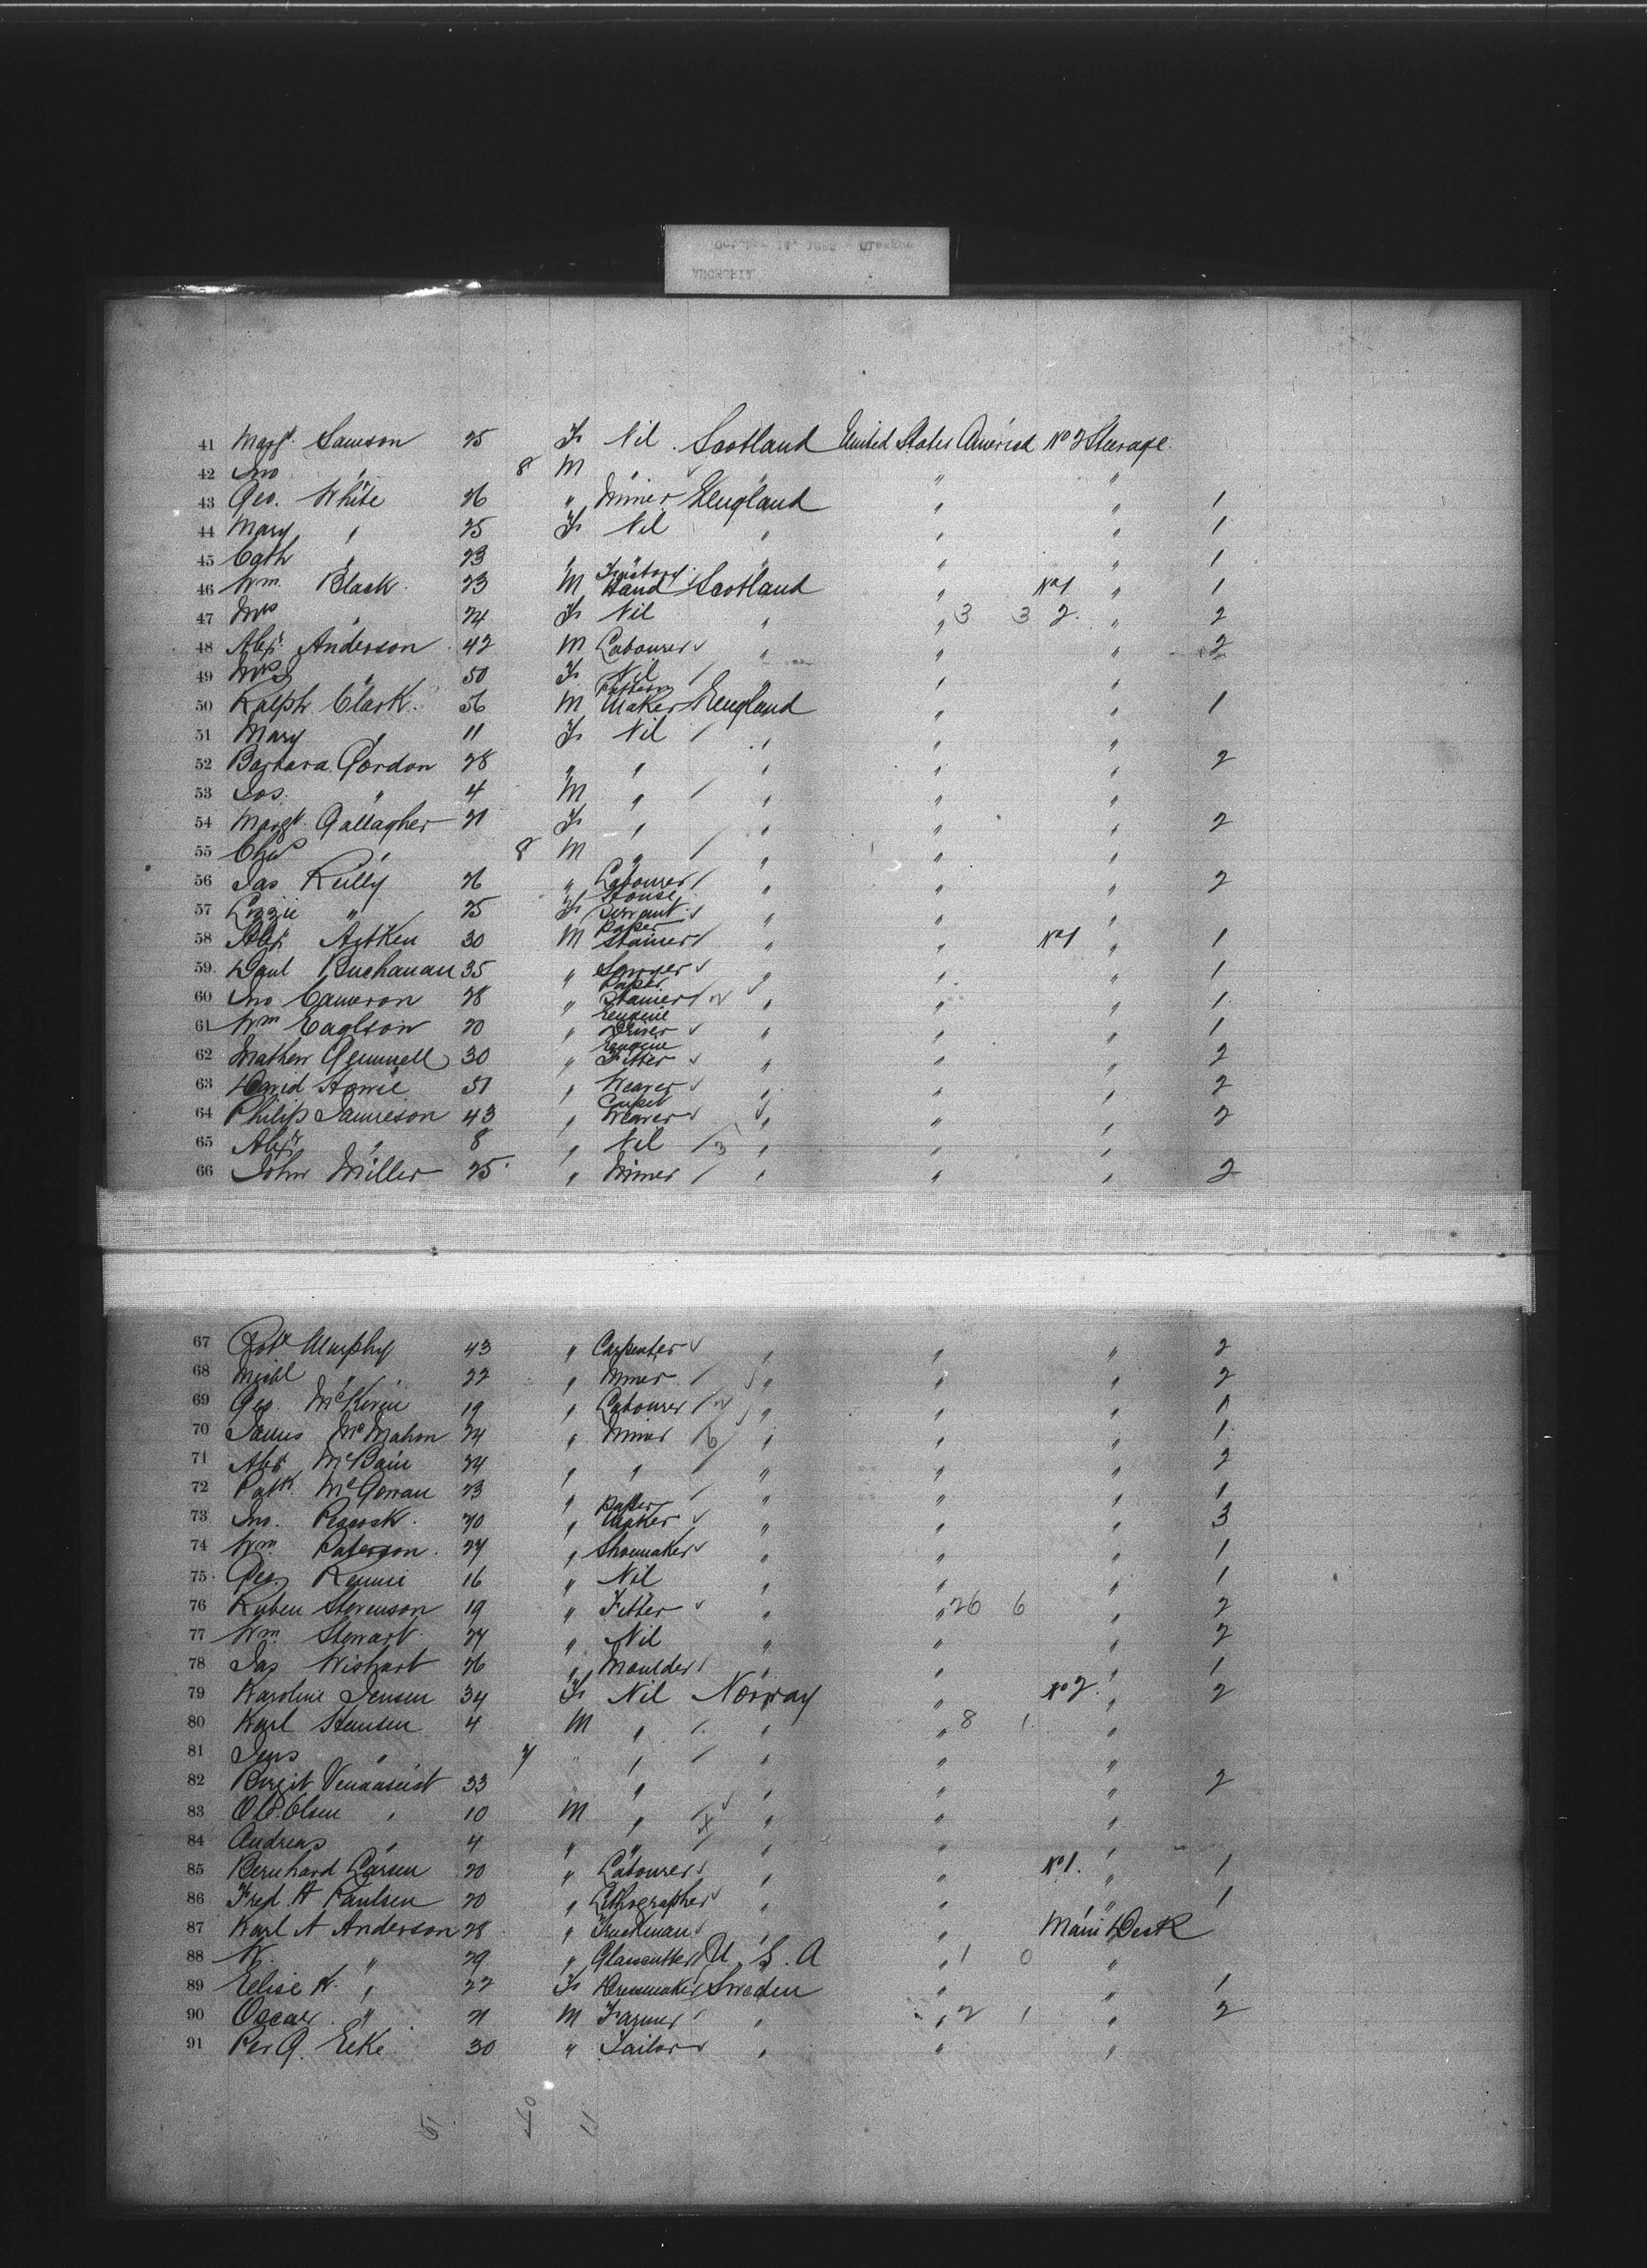 41 Margt. Samson 25 F Nil Scotland United States America No 2 Steerage
42 Jno " 8 M " " " "
43 Geo. White 26 " Miner England " " 1
44 Mary " 25 F Nil " " " 1
45 Cath " 23 " " " " " 1
46 Wm. Black 23 M Factory Hand Scotland " No 1 " 1
47 Mrs " 24 F Nil " " 3 3 2. " 2
48 Alexr. Anderson 42 M Labourer " " " 2
49 Mrs " 50 F Nil " " "
50 Ralph Clark 56 M Pattern Maker England " " 1
51 Mary " 11 F Nil " " "
52 Barbara Gordon 28 " " " " " 2
53 Jos. " 4 M " " " "
54 Margt. Gallagher 21 F " " " " 2
55 Chas " 8 M " " " "
56 Jas Reilly 26 " Labourer " " " 2
57 Lizzie " 25 F House Servant " " "
58 Alexr Aitken 30 M Paper Stainer " " No 1 " 1
59 Danl Buchanan 35 " Sawyer " " " 1
60 Jno Cameron 28 " Paper Stainer " " " 1
61 Wm Eaglson 20 " Engine Driver " " " 1
62 Mathew Gemmell 30 " Engine Fitter " " " 2
63 David Howie 51 " Weaver " " " 2
64 Philip Jamieson 43 " Carpet Weaver " " " 2
65 Alexr " 8 " Nil 3 " " "
66 John Miller 25 " Miner " " " 2
67 Robt Murphy 43 " Carpenter " " " 2
68 Michl " 22 " Miner " " " 2
69 Geo. 19 " Labourer " " " 1
70 James McMahon 24 " Miner 6 " " " 1
71 Alex McBain 24 " " " " " 2
72 Patk McGowan 23 " " " " " 1
73 Jno. Peacock 20 " Paper Maker " " " 3
74 Wm. Paterson 27 " Shoemaker " " " 1
75 Geo. Rennie 16 " Nil " " " 1
76 Ruben Stevenson 19 " Fitter " " 26 6 " 2
77 Wm. Stewart 27 " Nil " " " 2
78 Jas Wishart 26 " Moulder " " " 1
79 Karoline Jensen 34 F Nil Norway " No 2. " 2
80 Karl Hansen 4 M " " " 8 1 "
81 Jens " 7 " " " " "
82 Birgit 33 " " " " 2
83 Ole Olsen " 10 M " " " "
84 Andreas " 4 " " " " "
85 Bernhard Larsen 20 " Labourer " " No 1. " 1
86 Fred A Paulsen 20 " Lithographer " " " 1
87 Karl A Anderson 28 " Truckman " " Main Deck
88 W. " 29 " Glasscutter U.S.A " 1 0 "
89 Eelise K. " 22 F Dressmaker Sweden " " 1
90 Oscar " 21 M Farmer " " 2 1 " 2
91 Per A. Eeke 30 " Tailor " " "
51 40 11